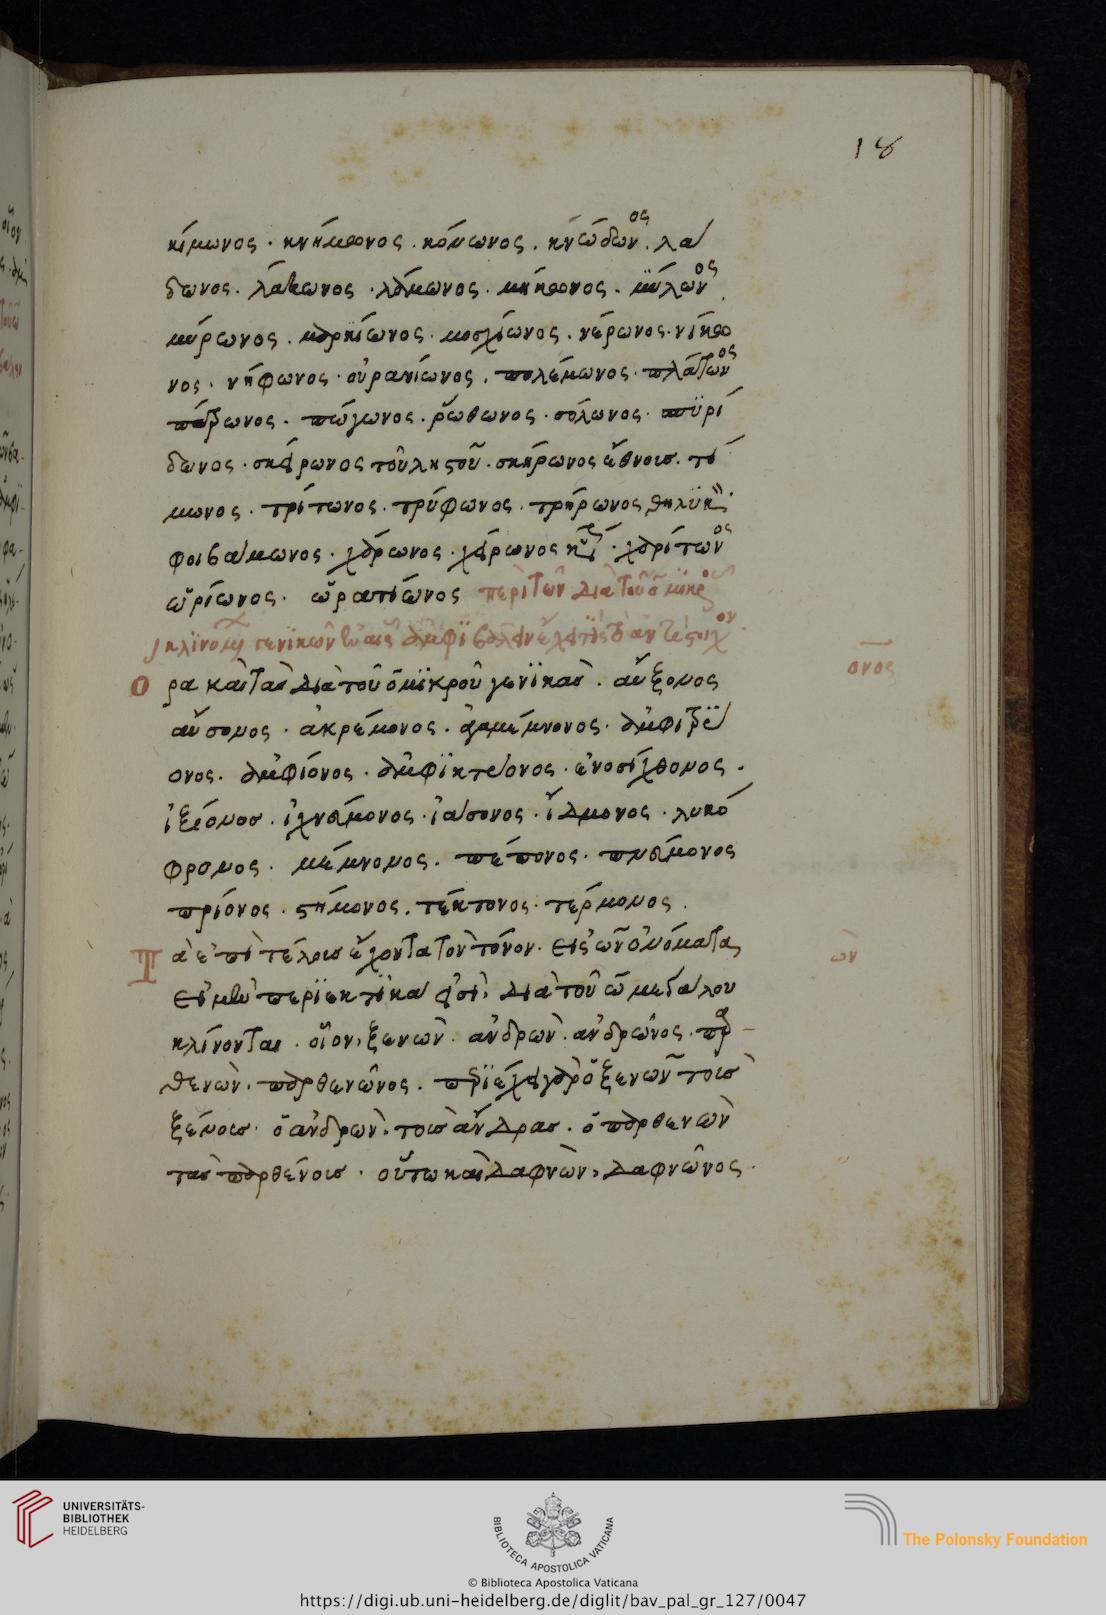 18
κίμωνος · κνήμωνος · κόνωνος · κνώδωνος · λά
δωνος · λάκωνος · λάμωνος · μήκωνος · μύλωνος
μύρωνος · μαρϊίωνος · μοσχίωνος · νέρωνος · νίκω
νος · νήφωνος · οὐρανίωνος · πολέμωνος · πλάτωνος
πάρωνος · πώγωνος · ῥώθωνος · σόλωνος · σπϋρί
δωνος · σκείρωνος τοῦ ληστοῦ · σκήρωνος ἔθνους · τί
μωνος · τρίτωνος · τρύφωνος · τρήρωνος θηλϋκῶς
φοιβάμωνος · χάρωνος · χείρωνος · χαρίτωνος
ὠρίωνος · ὡραπίωνος περὶ τῶν διὰ τοῦ ο μικροῦ
κλϊνομένων γενϊκῶν
ονος
Ορα καὶ τὰς διὰ τοῦ ο μϊκροῦ γενϊκάς · αὔξονος
αὔσονος · ἀκρέμονος · ἀγαμέμνονος · ἀμφιτρϋ
ονος · ἀμφίονος · ἀμφϊκτύονος · ἐνοσίχθονος ·
ἰξίονος · ἰχνεύμονος · ἰάσονος · ἴδμονος · λυκό
φρονος · μέμνονος · πέπονος · πνεύμονος
πρίονος · στήμονος · τέκτονος · τέρμονος ·
Τὰ ἐπὶ τέλους ἔχοντα τὸν τόνον · εἰς ων ὀνόματα
ων
εἰ μὲν περϊεκτϊκά εἰσι, διὰ τοῦ ω μεγάλου
κλίνονται · οἷον, ξενών · ἀνδρών · ἀνδρῶνος · παρ
θενών · παρθενῶνος · πϊέχει γὰρ ὁ ξενὼν τοὺς
ξένους · ὁ ἀνδρών, τοὺς ἄνδρας · ὁ παρθενὼν
τὰς παρθένους · οὕτω καὶ δαφνών, δαφνῶνος ·
UNIVERSITÄTS-
BIBLIOTHEK
HEIDELBERG
BIBLIOTECA APOSTOLICA VATICANA
The Polonsky Foundation
© Biblioteca Apostolica Vaticana
https://digi.ub.uni-heidelberg.de/diglit/bav_pal_gr_127/0047